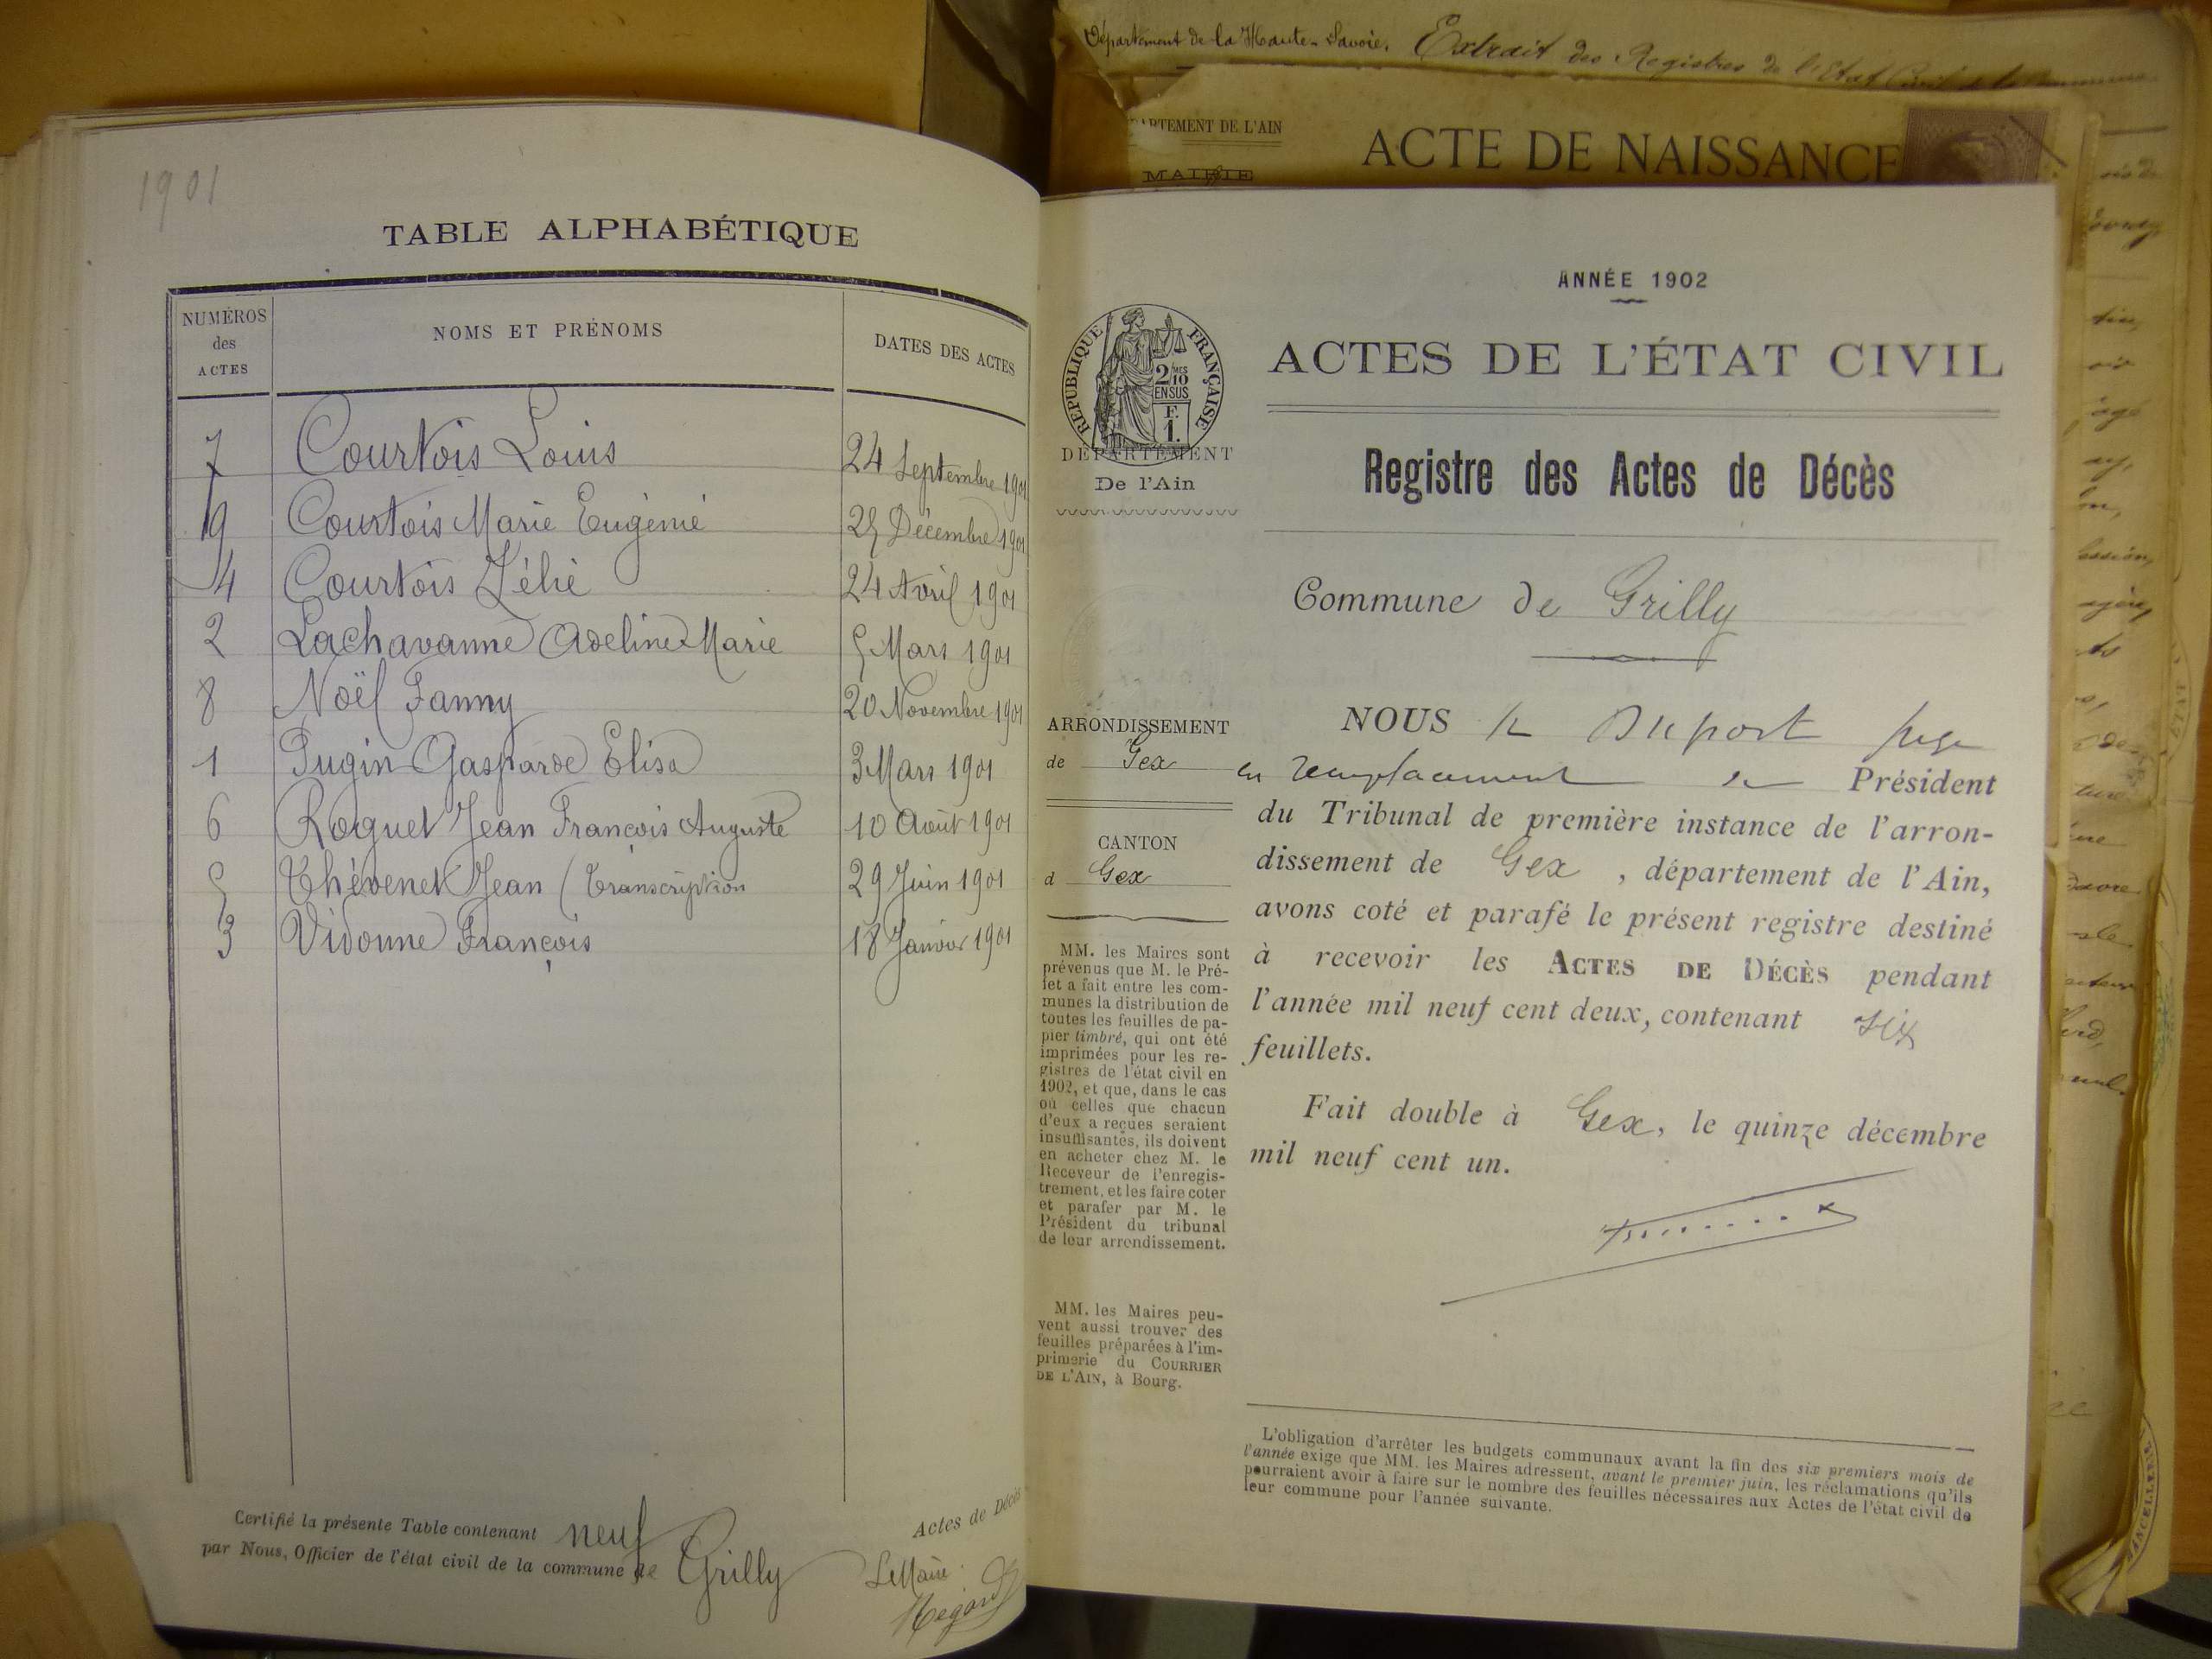 Département de la Haute-Savoie. Extrait des Registres de l'Etat Civil de la
ARTEMENT DE L'AIN
ACTE DE NAISSANCE
MAIRIE
1901
TABLE ALPHABÉTIQUE
NUMÉROS des ACTES
NOMS ET PRÉNOMS
DATES DES ACTES
7 Courtois Louis 24 Septembre 1901
9 Courtois Marie Eugénie 25 Décembre 1901
4 Courtois Zélie 24 Avril 1901
2 Lachavanne Adeline Marie 5 Mars 1901
8 Noël Fanny 20 Novembre 1901
1 Pugin Gasparde Elisa 3 Mars 1901
6 Roguet Jean François Auguste 10 Août 1901
5 Thévenet Jean (Transcription 29 Juin 1901
3 Vidonne François 18 Janvier 1901
Certifié la présente Table contenant neuf Actes de Décès
par Nous, Officier de l'état civil de la commune de Grilly
Le Maire
Regard
ANNÉE 1902
RÉPUBLIQUE FRANÇAISE
2/10 MES
EN SUS
F.
1.
DÉPARTEMENT
De l'Ain
ACTES DE L'ÉTAT CIVIL
Registre des Actes de Décès
Commune de Grilly
ARRONDISSEMENT
de Gex
CANTON
d Gex
NOUS Duport juge
en remplacement Président
du Tribunal de première instance de l'arron-
dissement de Gex , département de l'Ain,
avons coté et parafé le présent registre destiné
à recevoir les ACTES DE DÉCÈS pendant
l'année mil neuf cent deux, contenant six
feuillets.
Fait double à Gex, le quinze décembre
mil neuf cent un.
MM. les Maires sont
prévenus que M. le Pré-
fet a fait entre les com-
munes la distribution de
toutes les feuilles de pa-
pier timbré, qui ont été
imprimées pour les re-
gistres de l'état civil en
1902, et que, dans le cas
où celles que chacun
d'eux a reçues seraient
insuffisantes, ils doivent
en acheter chez M. le
Receveur de l'enregis-
trement, et les faire coter
et parafer par M. le
Président du tribunal
de leur arrondissement.
MM. les Maires peu-
vent aussi trouver des
feuilles préparées à l'im-
primerie du COURRIER
DE L'AIN, à Bourg.
L'obligation d'arrêter les budgets communaux avant la fin des six premiers mois de
l'année exige que MM. les Maires adressent, avant le premier juin, les réclamations qu'ils
pourraient avoir à faire sur le nombre des feuilles nécessaires aux Actes de l'état civil de
leur commune pour l'année suivante.